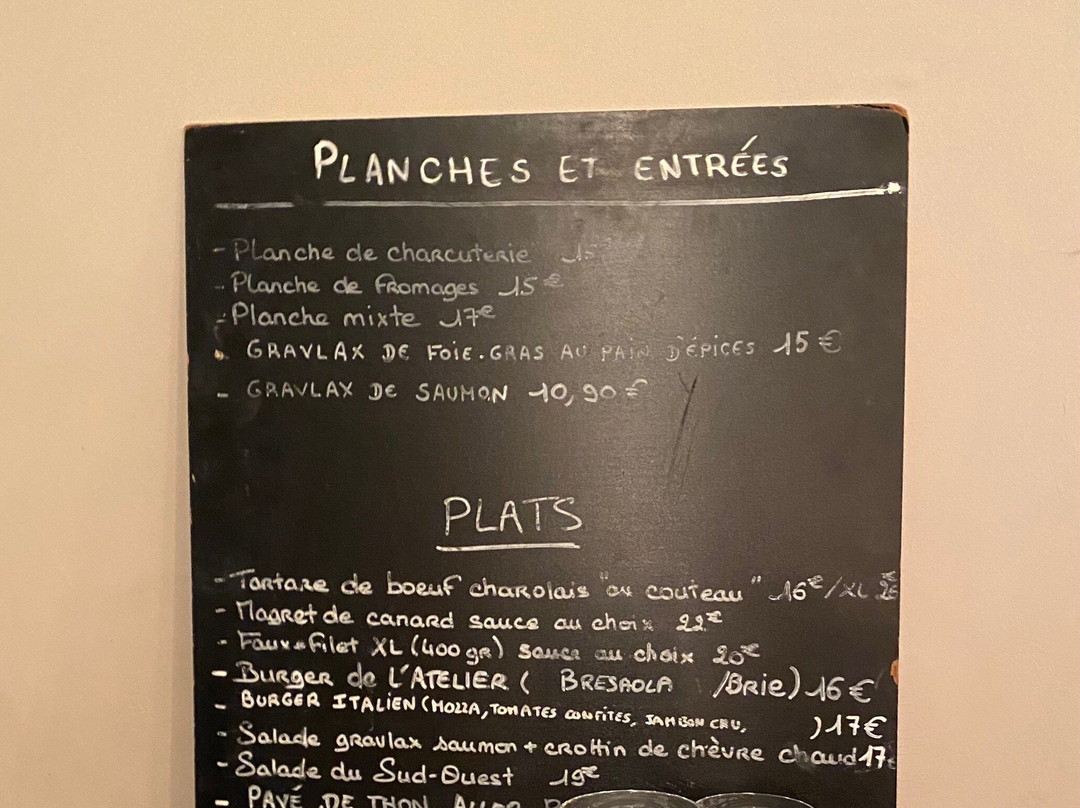 PLANCHES ET ENTRÉES
- Planche de charcuterie 15
- Planche de fromages 15€
- Planche mixte 17€
- GRAVLAX DE FOIE.GRAS AU PAIN D'ÉPICES 15€
- GRAVLAX DE SAUMON 10,90€
PLATS
- Tartare de boeuf charolais "au couteau" 16€/XL
- Magret de canard sauce au choix 22€
- Faux-Filet XL (400gr) sauce au choix 20€
- Burger de L'ATELIER ( BRESAOLA /Brie) 16€
- BURGER ITALIEN (MOZZA, TOMATES CONFITES, JAMBON CRU, ) 17€
- Salade gravlax saumon + crottin de chèvre chaud 17€
- Salade du Sud-Ouest 19€
- PAVÉ DE THON